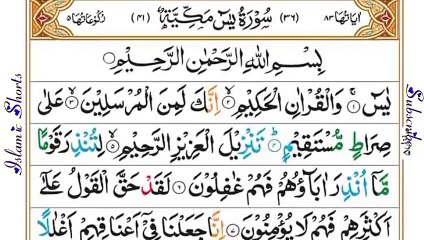 اٰيَاتُهَا ٨٣ (٣٦) سُوْرَةُ يٰسٓ مَكِّيَّةٌ (٤١) رُكُوْعَاتُهَا ٥
بِسْمِ اللّٰهِ الرَّحْمٰنِ الرَّحِيْمِ
يٰسٓ ۚ‏﴿۱﴾ وَالْقُرْاٰنِ الْحَكِيْمِ ۙ‏﴿۲﴾ اِنَّكَ لَمِنَ الْمُرْسَلِيْنَ ۙ‏﴿۳﴾ عَلٰى
صِرَاطٍ مُّسْتَقِيْمٍ ؕ‏﴿۴﴾ تَنْزِيْلَ الْعَزِيْزِ الرَّحِيْمِ ۙ‏﴿۵﴾ لِتُنْذِرَ قَوْمًا
مَّاۤ اُنْذِرَ اٰبَآؤُهُمْ فَهُمْ غٰفِلُوْنَ‏﴿۶﴾ لَقَدْ حَقَّ الْقَوْلُ عَلٰٓى
اَكْثَرِهِمْ فَهُمْ لَا يُؤْمِنُوْنَ‏﴿۷﴾ اِنَّا جَعَلْنَا فِىْۤ اَعْنَاقِهِمْ اَغْلٰلًا
Islamic Shorts